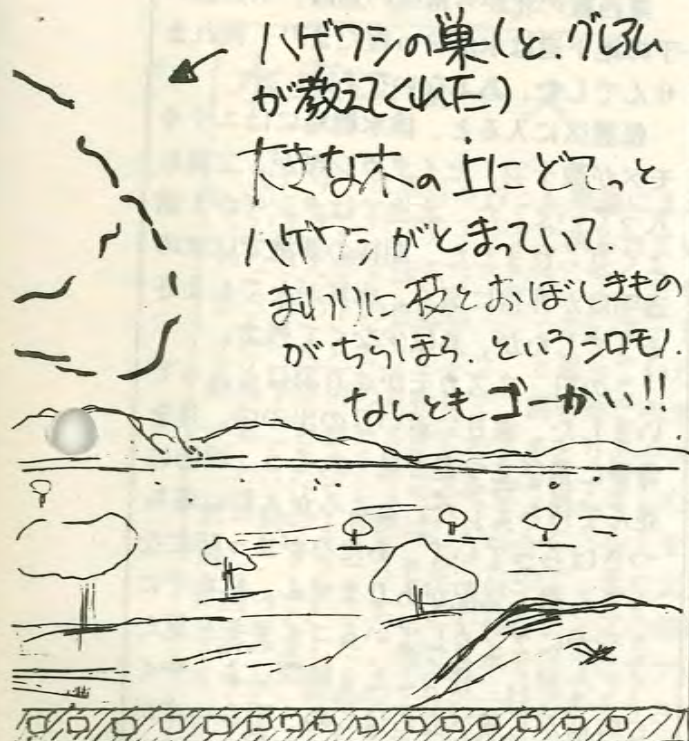 ハゲワシの巣(と、グレアム
が教えてくれた)
大きな木の上にどてっと
ハゲワシがとまっていて、
まわりに枝とおぼしきもの
がちらほら、というシロモノ。
なんともゴーかい!!